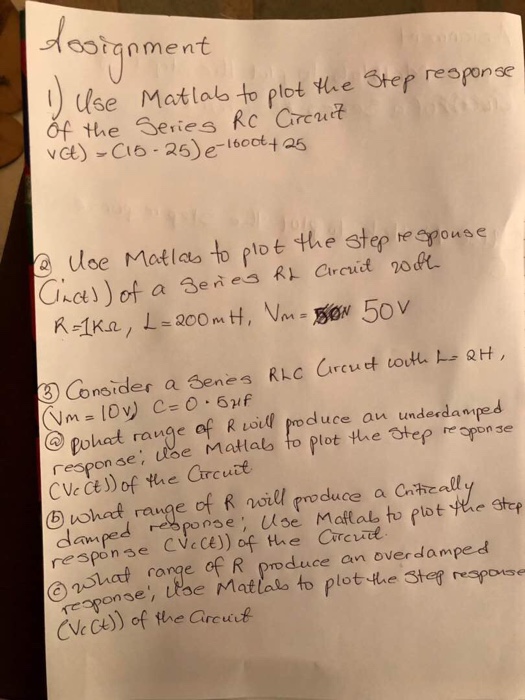 Assignment
1) Use Matlab to plot the Step response
of the Series RC Circuit
v(t) = (15 - 25)e^-1600t + 25
② Use Matlab to plot the step response
(iL(t)) of a Series RL Circuit with
R=1KΩ, L=200mH, Vm= 50V
③ Consider a Series RLC Circuit with L= 2H,
(Vm=10v) C=0.5μf
ⓐ what range of R will produce an underdamped
response; Use Matlab to plot the Step response
(Vc(t)) of the Circuit
ⓑ what range of R will produce a Critically
damped response; Use Matlab to plot the Step
response (Vc(t)) of the Circuit.
ⓒ what range of R produce an overdamped
response; Use Matlab to plot the Step response
(Vc(t)) of the Circuit